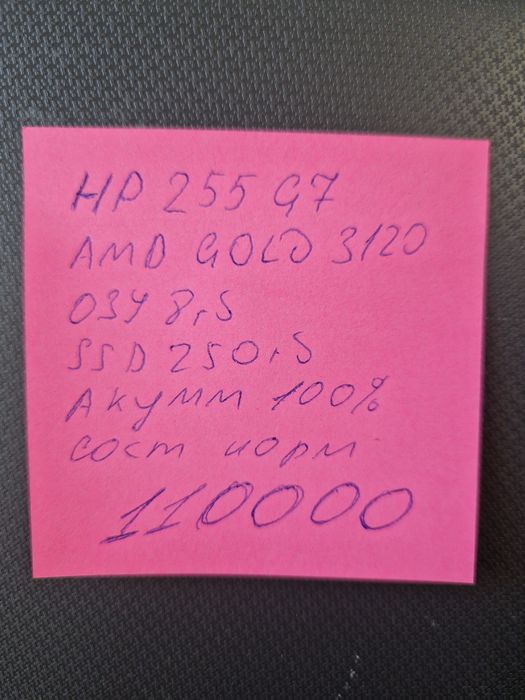 HP 255 G7
AMD GOLD 3120
ОЗУ 8гб
SSD 250гб
Акумм 100%
сост норм
110000